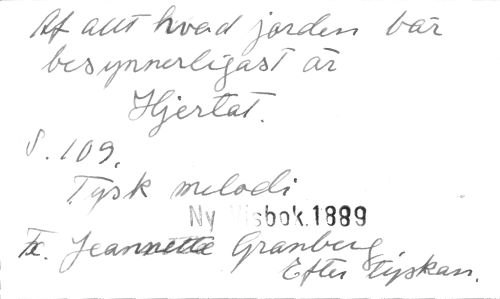 Af allt hvad jorden bär
besynnerligast är
Hjertat.
S. 109.
Tysk melodi
Ny Visbok.1889
Jeannette Granberg
Efter tyskan.